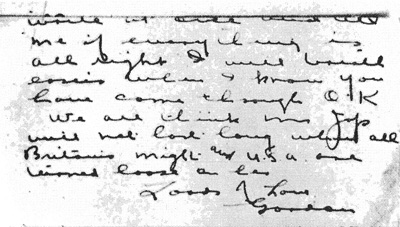 write at once and let
me if everything is
all right I will breath
easier when I know you
have come through O.K
We all think mr Jap
will not last long when all
Britains might and U.S.a. are
turned loose on
Loads of Love
Gordon